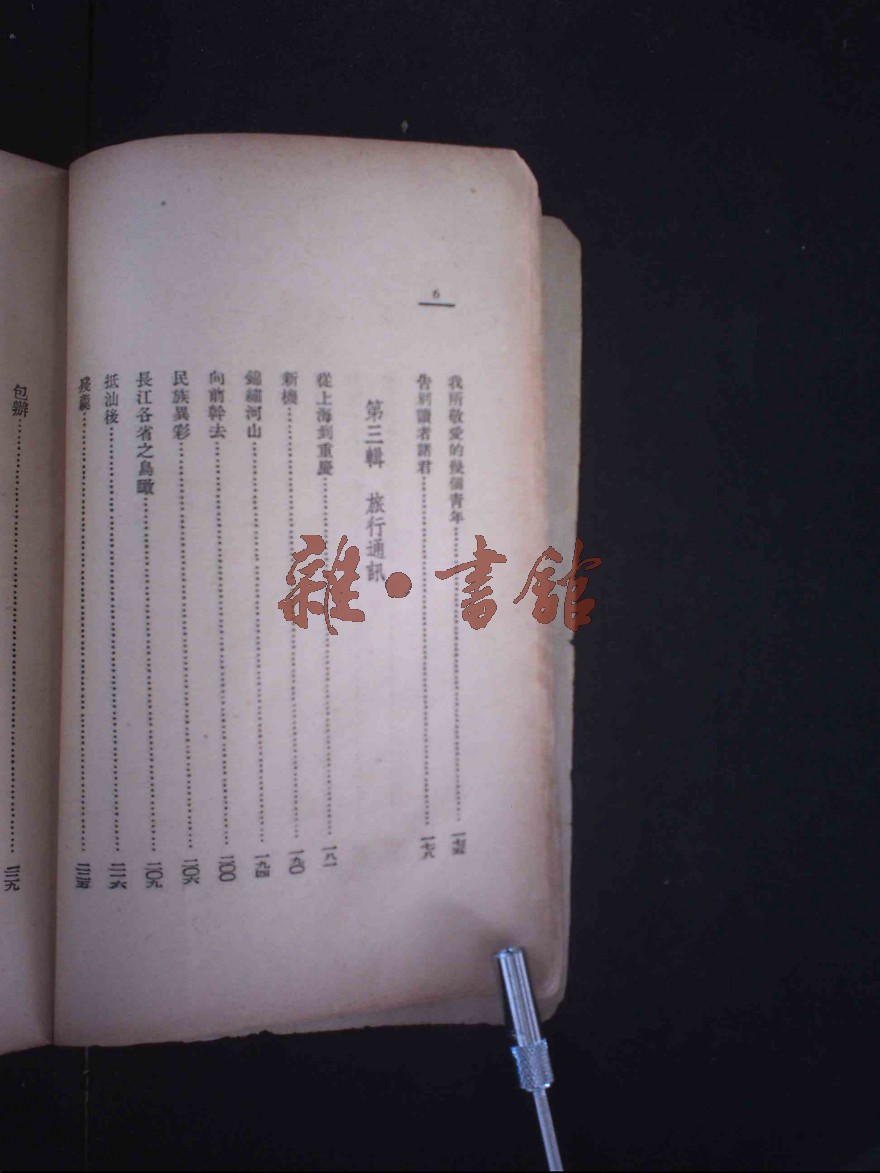 6
我所敬愛的幾個青年……一七五
告別讀者諸君……一七八
第三輯　旅行通訊
從上海到重慶……一八一
新機……一九〇
錦繡河山……一九四
向前幹去……二〇〇
民族異彩……二〇六
長江各省之鳥瞰……二〇九
抵汕後……二一六
……二二五
包辦……二三九
雜·書館